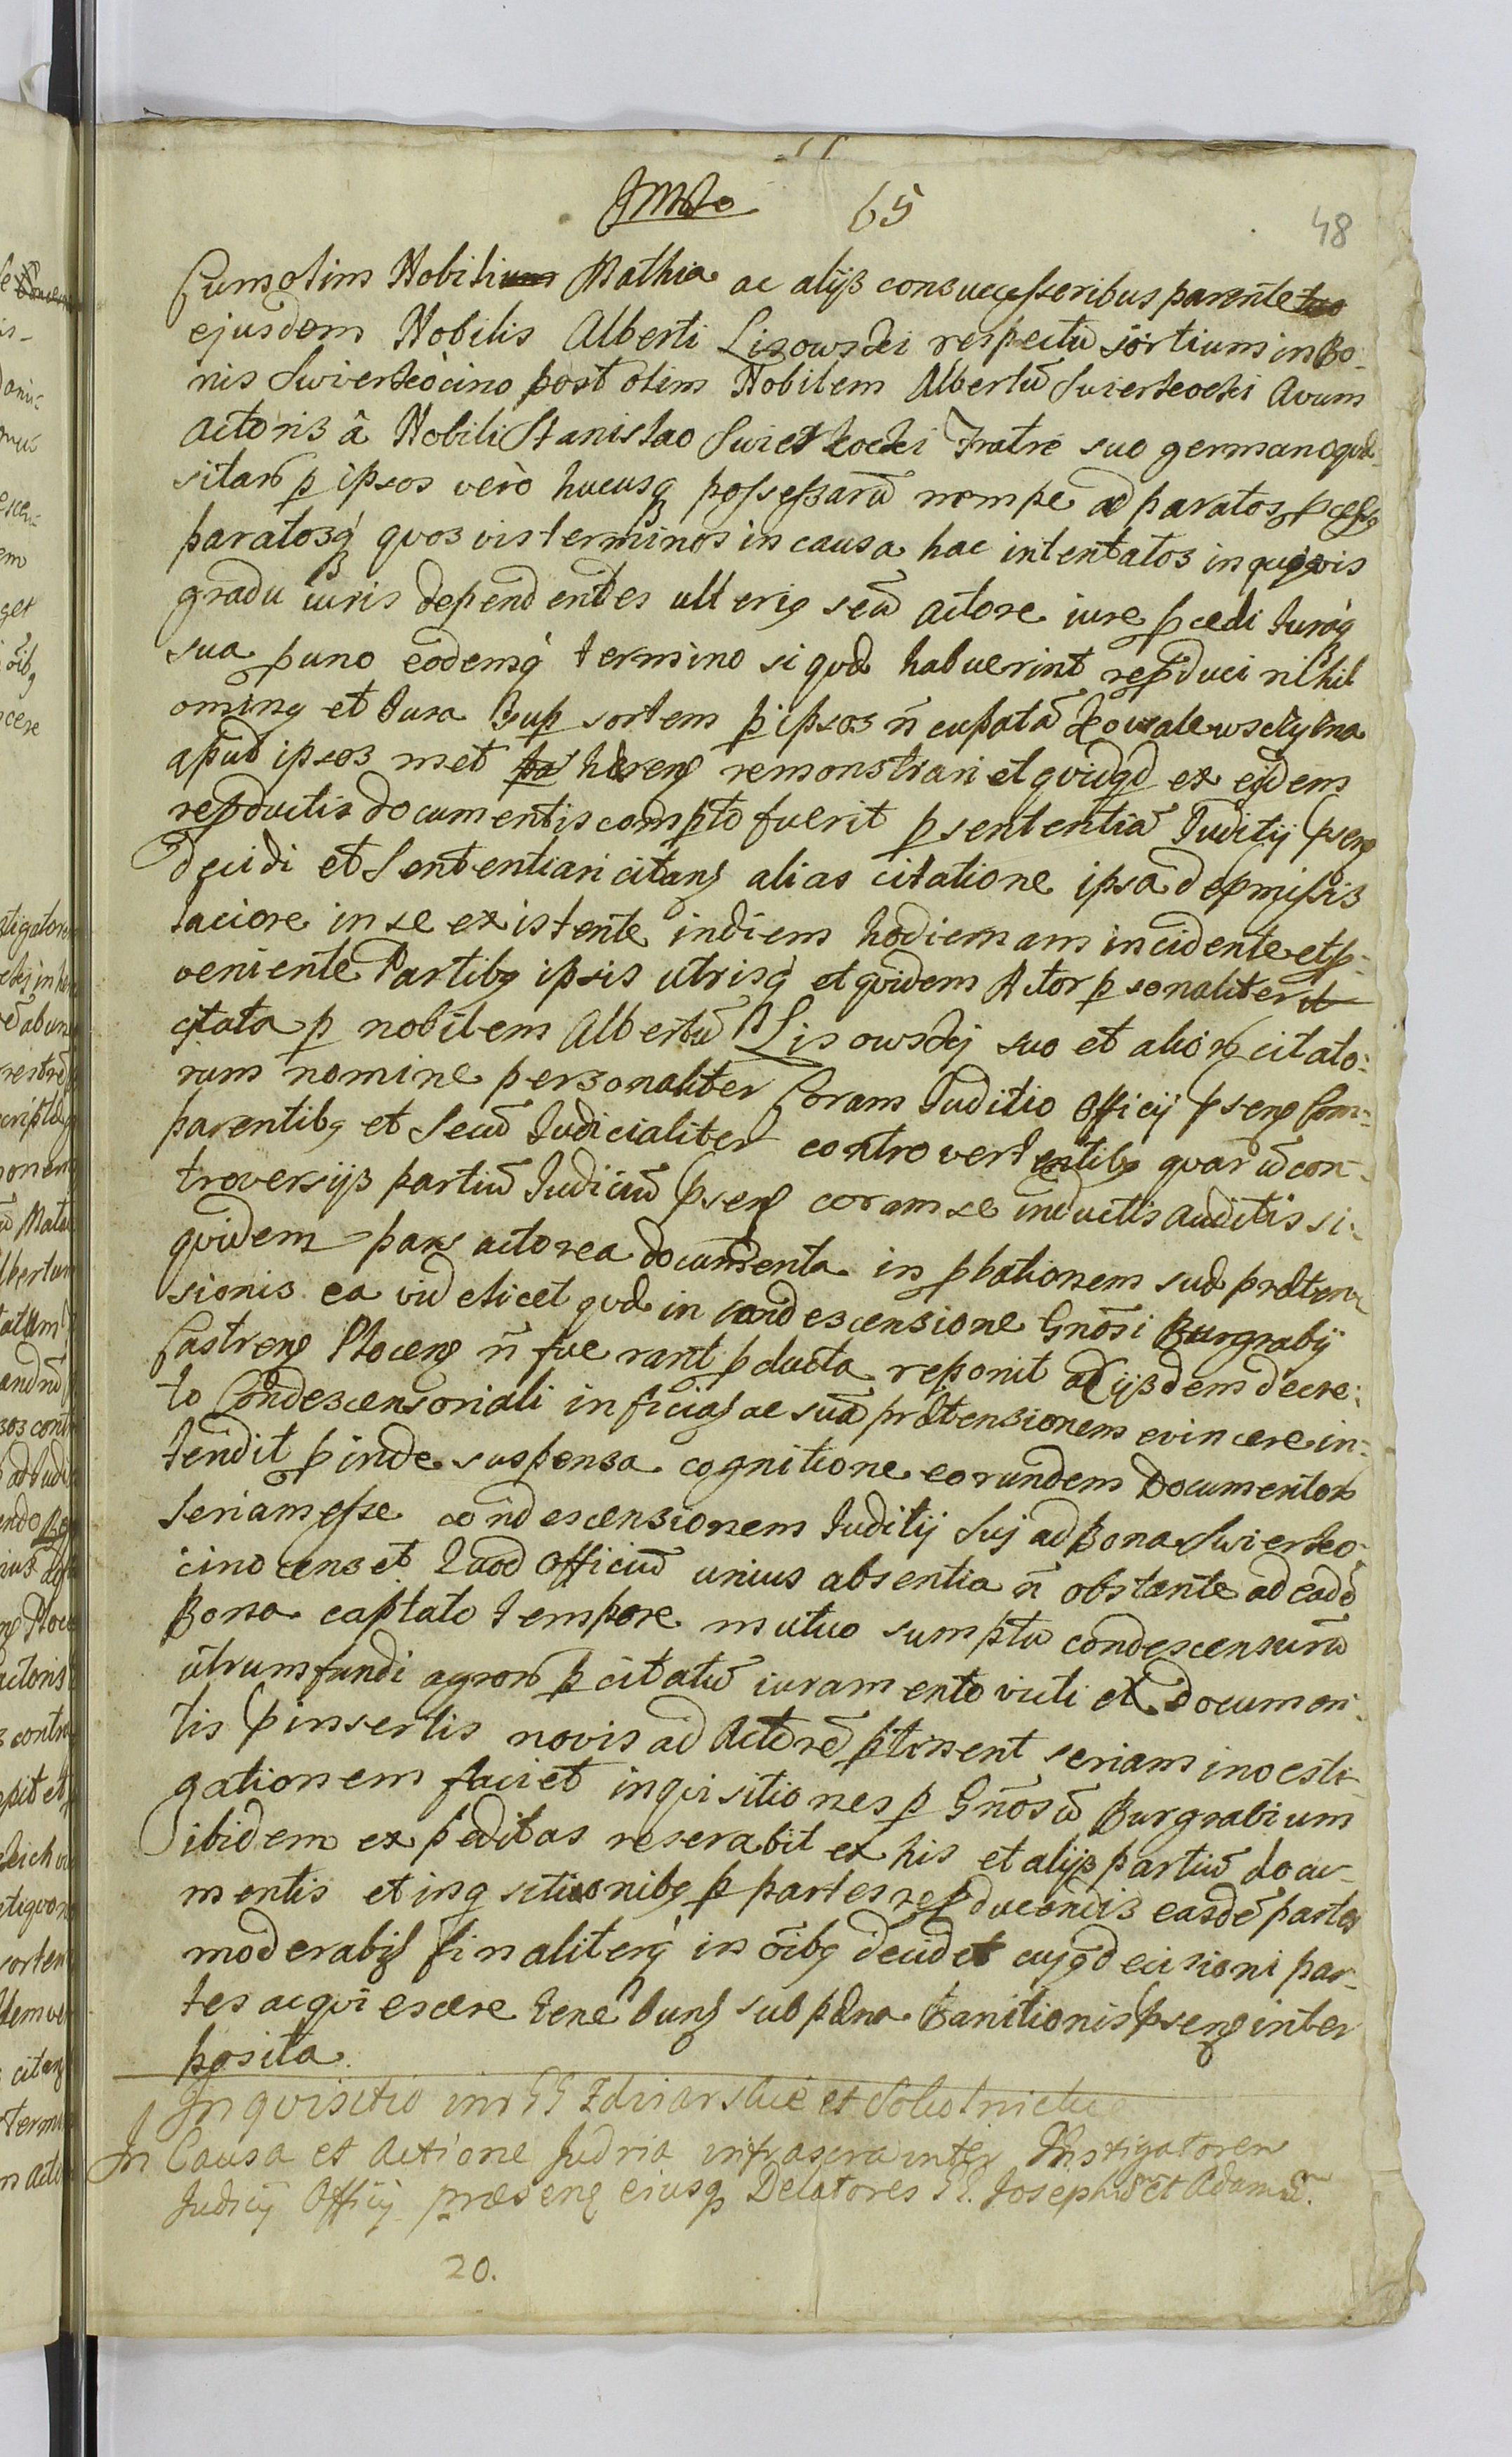 65
48
Cum olim Nobili Mathia ac alijs consuccessoribus parente
ejusdem Nobilis Alberti Lisowski respectu sortium in Bo:
nis Swierkocino post olim Nobilem Albertū Swierkocki Avum
Actoris â Nobili Stanislao Swierkocki Fratre suo germano qvæ
sitar p ipsos verò hucusq possessarū nempe ad paratos
paratosq quos vis terminos in causa hac intentatos in quovis
gradu iuris dependentes ulterig secū Actore iure pcedi Iuraq
sua p uno eodemq termino si qvæ habuerint repduci nihil
oming et Iura sup sortem p ipsos ñ eupatā Kowalewsczyzna
apud ipsos met hæreng remonstrari et qvidqd ex eisdem
repductis documentis compto fuerit p sententiā Iuditij pseng
decidi et Sententiari citang alias citatione ipsa depmissis
laciore in se existente in diem hodiernam incidente et p:
veniente Partibg ipsis utrisq et qvidem Actor psonaliter
citata p nobilem Albertū Lisowskij suo et alior citato:
rum nomine personaliter Coram Iuditio Officij pseng Com:
parentibg et Secū Iudicialiter controvertentibg quarū con:
troversijs partiū Iudiciū pseng coram se inductis auditis si:
qvidem pars actorea documenta in pbationem suæ præten
sionis ea videlicet qvæ in condescensione Gñosi Burgrabij
Castreng Ploceng ñ fuerant pducta reponit ac ijsdem decre:
to Condescensoriali inficias ac suā prætensionem evincere in:
tendit pinde suspensa cognitione eorundem Documentor
seriam esse condescensionem Iuditij Suj ad Bona Swierko:
cino censet Quod Officiū unius absentia ñ obstante ad eadē
Bona captato tempore mutuo sumptu condescensurū
utrum fundi agror p citatū iuramento victi ex documen:
tis pinsertis novis ad Actorē ptinent seriam investi
gationem faciet inqvisitiones p Gñosū Burgrabium
ibidem expeditas reserabit ex his et alijs partiū docu
mentis et inqsitionibg p partes repducendis easdē partes
moderabig finaliterq in oībg decidet cujg decisioni par:
tes acqviescere tenebung sub pæna Banitionis pseng inter
posita.
Inqvisitio inr GG Zdziarskie et Sokolnickie
In Causa et Actione Judria infrascra inter Instigatorem
Judicij Officij præseng eiusq Delatores GG. Josephū et Adamū
20.